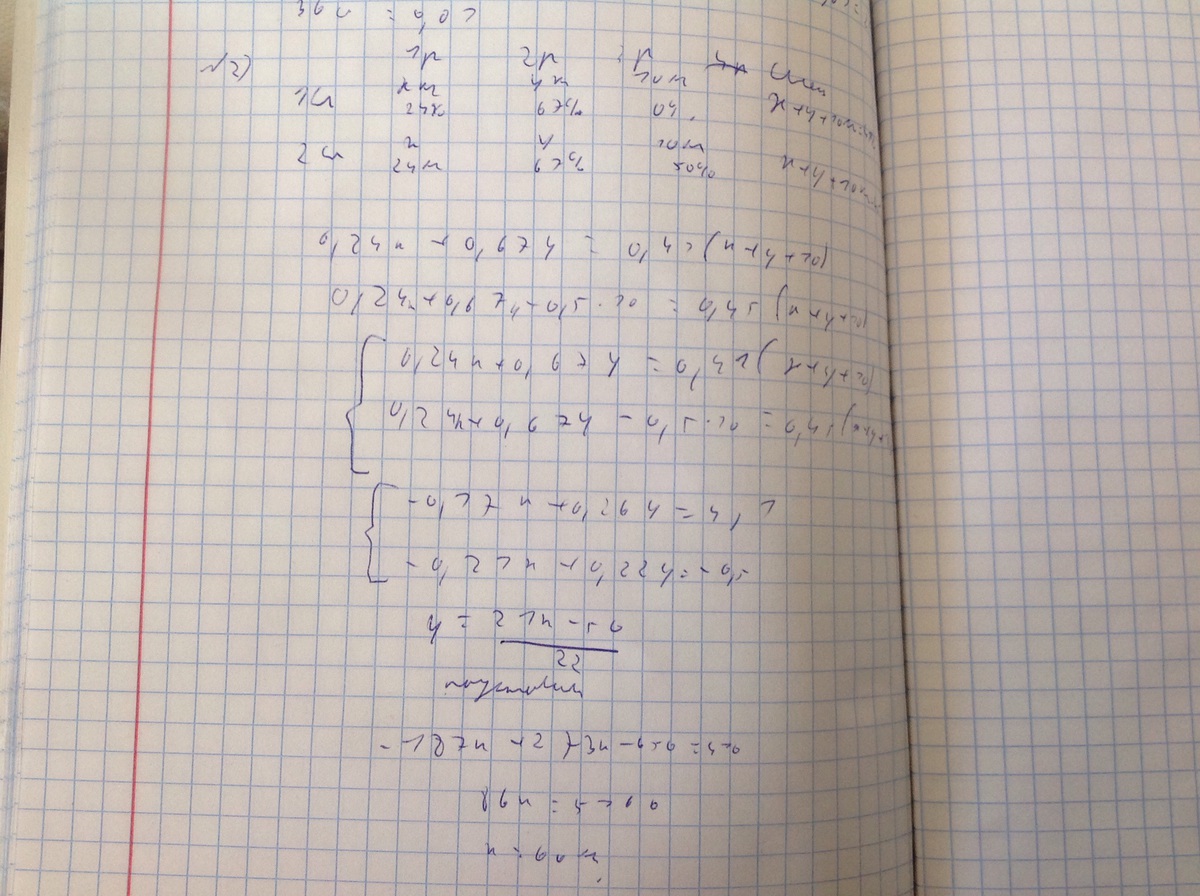 36x = 0,01
№2)
1р 2р 3р
1см x кг y кг 10 кг x+y+10
24% 67% 0%
2см x y 10кг x+y+10
24% 67% 50%
0,24x + 0,67y = 0,41(x+y+10)
0,24x+0,67y+0,5·10 = 0,45(x+y+10)
0,24x+0,67y = 0,41(x+y+10)
0,24x+0,67y+0,5·10 = 0,45(x+y+
-0,17x+0,26y=4,1
-0,21x+0,22y=-0,5
y = 21x-50
22
подставим
-187x+273x-650=4510
86x=5160
x=60кг